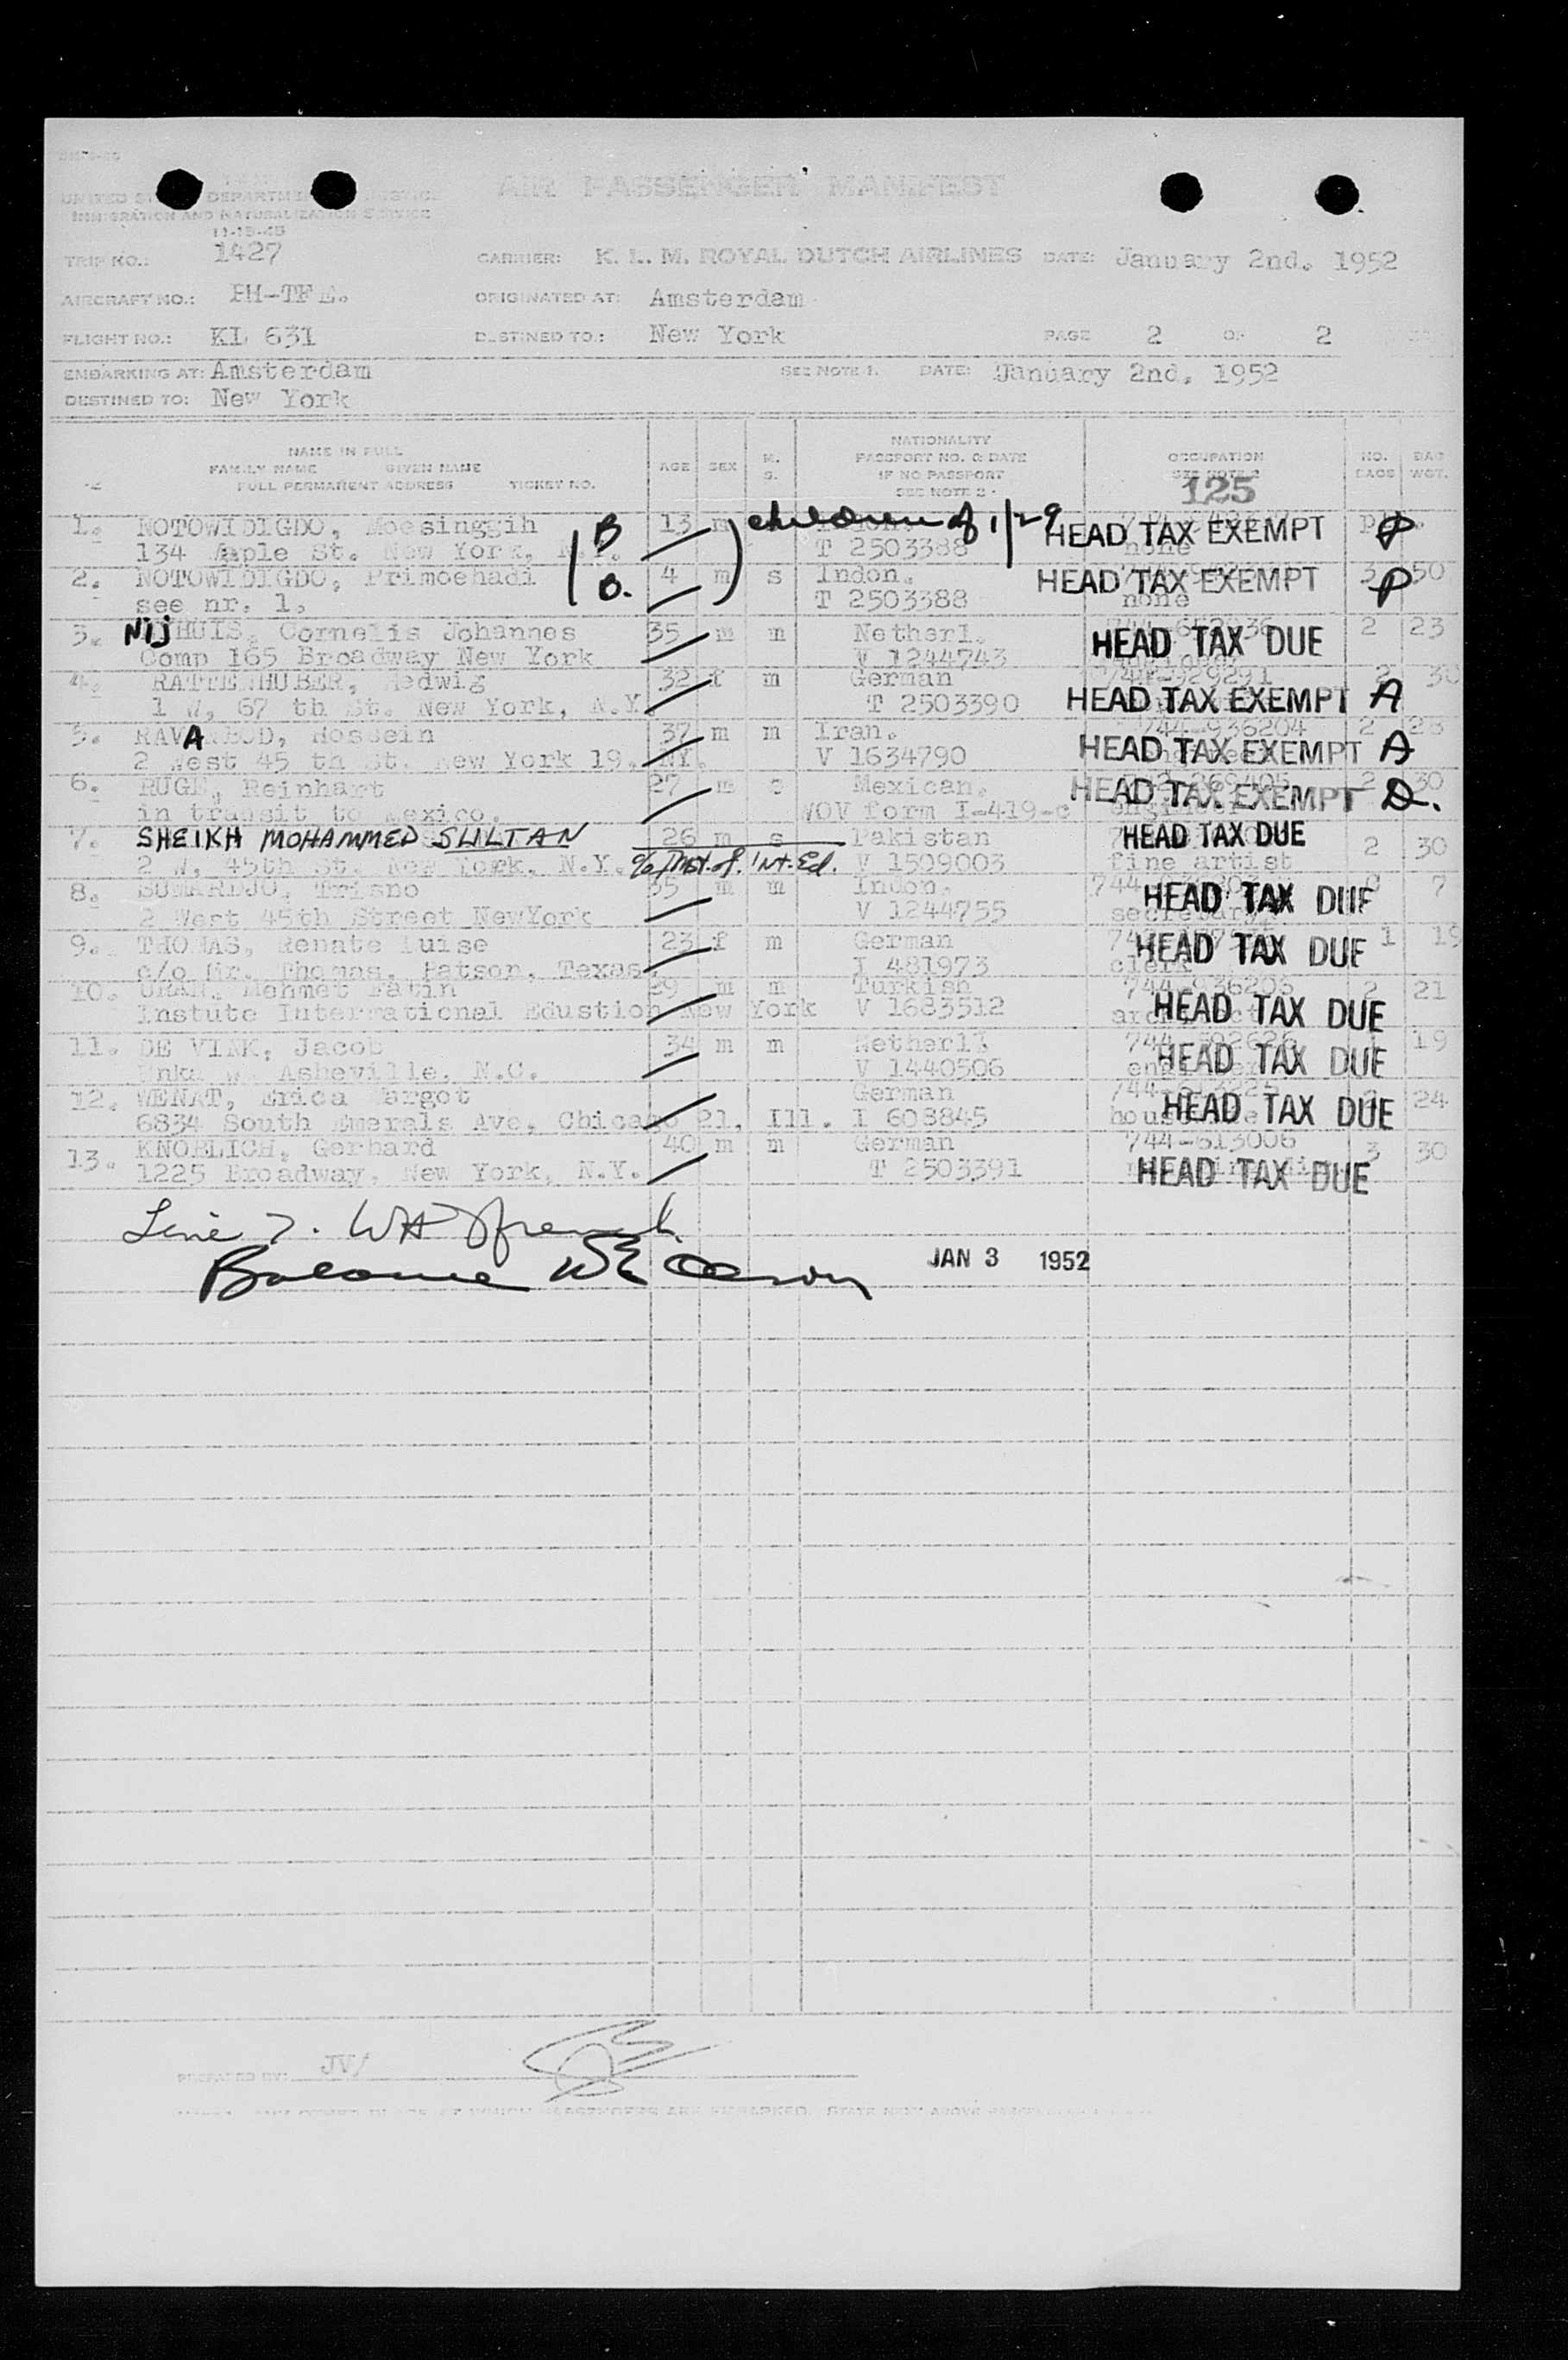 AIR PASSENGER MANIFEST
UNITED DEPARTMENT
IMMIGRATION AND NATURALIZATION SERVICE
11-15-45
TRIP NO.: 1427 CARRIER: K. L. M. ROYAL DUTCH AIRLINES DATE: January 2nd. 1952
AIRCRAFT NO.: PH-TFE. ORIGINATED AT: Amsterdam
FLIGHT NO.: KL 631 DESTINED TO: New York PAGE 2 OF 2
EMBARKING AT: Amsterdam SEE NOTE 1. DATE: January 2nd, 1952
DESTINED TO: New York
NAME IN FULL NATIONALITY
FAMILY NAME GIVEN NAME AGE SEX M. S. PASSPORT NO. & DATE OCCUPATION NO. BAGS BAG WGT.
IF NO PASSPORT SEE NOTE 2
FULL PERMANENT ADDRESS TICKET NO. SEE NOTE 2 125
1. NOTOWIDIGDO, Moesinggih B 13 m children of 1/29 HEAD TAX EXEMPT P
134 Maple St. New York, N.Y. T 2503388 none
2. NOTOWIDIGDO, Primoehadi B. 4 m s Indon. HEAD TAX EXEMPT P 3 50
see nr. 1. T 2503388 none
3. NIJHUIS, Cornelis Johannes 35 m m Netherl. HEAD TAX DUE 2 23
Comp 165 Broadway New York V 1244743
4. RATTENHUBER, Hedwig 32 f m German 744-929291 2 30
1 W, 67 th St. New York, N.Y. T 2503390 HEAD TAX EXEMPT A
5. RAVA Hossein 37 m m Iran. 744-936204 2 28
2 West 45 th St. New York 19, NY. V 1634790 HEAD TAX EXEMPT A
6. RUGE, Reinhart 27 m s Mexican. HEAD TAX EXEMPT D. 2 30
in transit to Mexico. WOV form I-419-c
7. SHEIKH MOHAMMED SULTAN 26 m s Pakistan HEAD TAX DUE 2 30
2 W, 45th St. New York, N.Y. c/o Inst. of Int. Ed. V 1509003 fine artist
8. SUMARDJO, Trisno 35 m m Indon. HEAD TAX DUE 7
2 West 45th Street NewYork V 1244755 secretary
9. THOMAS, Renate Luise 23 f m German HEAD TAX DUE 1 19
c/o Mr. Thomas, Patson, Texas I 481973 clerk
10. Mehmet Fatin 29 m m Turkish 744-936205 2 21
Instute International Edustion New York V 1683512 HEAD TAX DUE
11. DE VINK, Jacob 34 m m Netherl. HEAD TAX DUE 19
Asheville. N.C. V 1440506
12. WENAT, Erica Margot German HEAD TAX DUE 24
6834 South Emerals Ave, Chicago 21, Ill. I 603845
13. KNOBLICH, Gerhard 40 m m German 744-613006 3 30
1225 Broadway, New York, N.Y. T 2503391 HEAD TAX DUE
Line 7. WA French
Balance WE JAN 3 1952
PREPARED BY: JV/